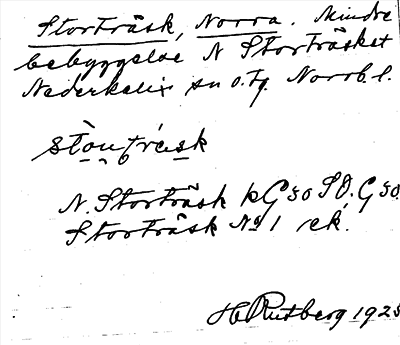 Storträsk, Norra. Mindre
bebyggelse N Storträsket
Nederkalix sn o. tg. Norrb. l.
N. Storträsk kG50 SO. G50.
Storträsk No 1 ek.
H Rutberg 1925